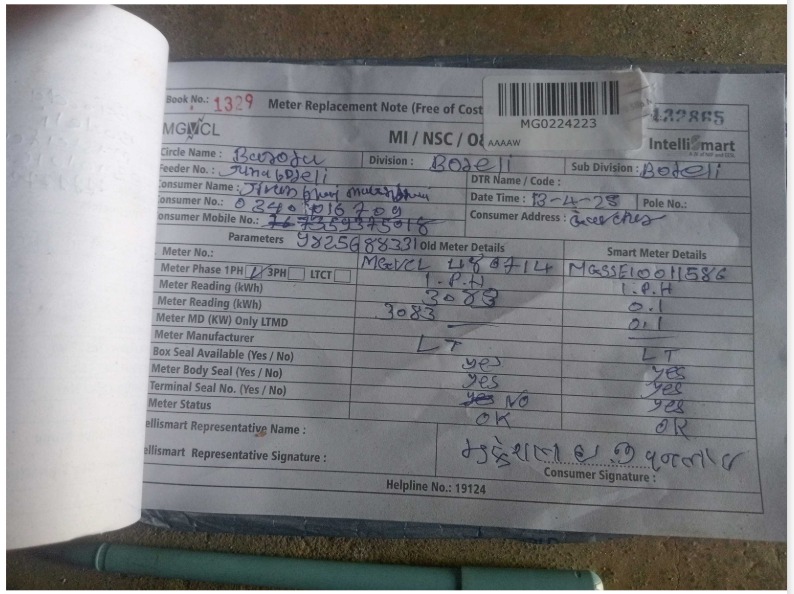 Book No.: 1329 Meter Replacement Note (Free of Cost
MG0224223
AAAAW
MGVCL
MI / NSC /
IntelliSmart
Circle Name : Baroda Division : Bodeli Sub Division : Bodeli
Feeder No.: DTR Name / Code :
Consumer Name : Date Time : 13-4-25 Pole No.:
Consumer No.: Consumer Address :
Consumer Mobile No.:
Parameters 9825688331 Old Meter Details Smart Meter Details
Meter No.: MGVCL MGSSE10011586
Meter Phase 1PH 3PH LTCT 1.P.H 1.P.H
Meter Reading (kWh) 3083 0.1
Meter Reading (kWh) 3083 0.1
Meter MD (KW) Only LTMD
Meter Manufacturer LT LT
Box Seal Available (Yes / No) yes yes
Meter Body Seal (Yes / No) yes yes
Terminal Seal No. (Yes / No) NO yes
Meter Status OK OK
ellismart Representative Name :
ellismart Representative Signature :
Consumer Signature :
Helpline No.: 19124